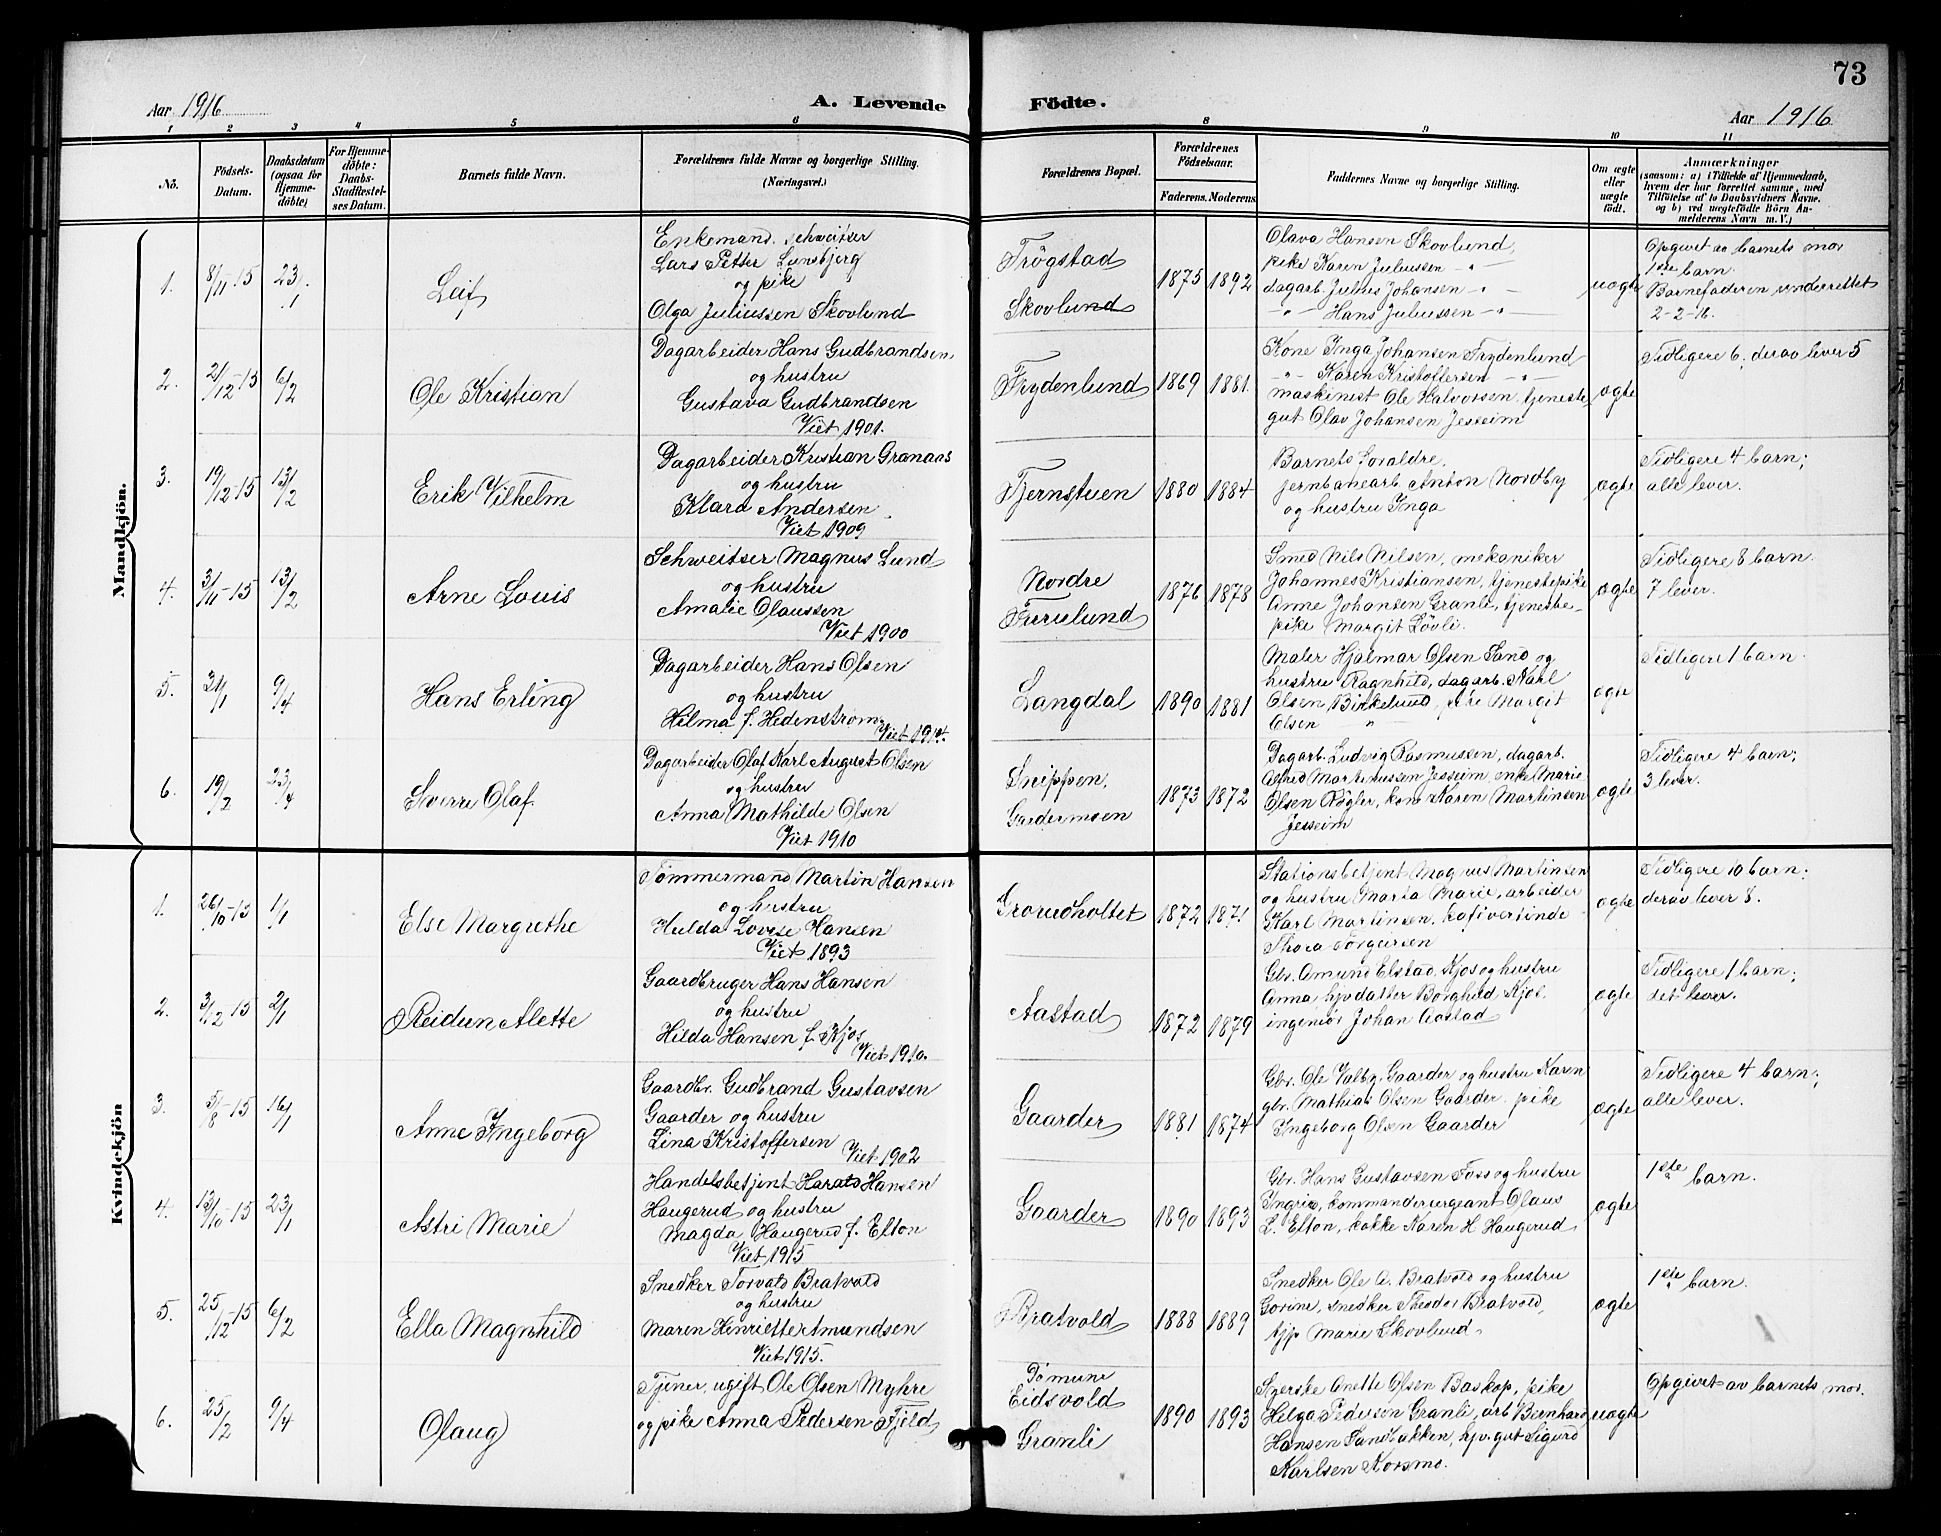 73
Aar 1916
A. Levende
Födte.
Aar 1916
1 2 3 4 5 6 8 9 10 11
Nö.
Födsels-
Datum.
Daabsdatum
(ogsaa for
Hjemme-
döbte)
For Hjemme-
döbte:
Daabs-
Stadfæstel-
ses Datum.
Barnets fulde Navn.
Forældrenes fulde Navne og borgerlige Stilling.
(Næringsvei.)
Forældrenes Bopæl.
Forældrenes
Födselsaar.
Faderens. Moderens.
Faddernes Navne og borgerlige Stilling.
Om ægte
eller
uægte
födt.
Anmærkninger
(saasom: a) i Tilfælde af Hjemmedaab,
hvem der har forrettet samme, med
Tilföielse af to Daabsvidners Navne.
og b) ved uægtefödte Börn An-
melderens Navn m. V.)
Mandkjön.
1.
8/11-15
23/1
Leif
Enkemand, schweitser
Lars Petter Lunsbjerg
og pike
Olga Juliussen Skovlund
Trögstad
Skovlund
1875
1892
Olava Hansen Skovlund,
pike Karen Juliussen -"-
dagarb. Julius Johansen -"-
-"- Hans Juliussen -"-
uægte
Opgivet av barnets mor
1ste barn.
Barnefaderen underrettet
2-2-16.
2.
2/12-15
6/2
Ole Kristian
Dagarbeider Hans Gudbrandsen
og hustru
Gustava Gudbrandsen
Viet 1901.
Frydenlund
1869
1881.
Kone Inga Johansen Frydenlund
-"- Karen Kristoffersen -"-
maskinist Ole Halvorsen, tjeneste
gut Olav Johansen Jesseim
ægte
Tidligere 6, derav lever 5
3.
19/12-15
13/2
Erik Vilhelm
Dagarbeider Kristian Granaas
og hustru
Klara Andersen
Viet 1909
Fjernstuen
1880
1884
Barnets foraldre,
jernbanearb Anton Nordby
og hustru Inga
ægte
Tidligere 4 barn;
alle lever.
4.
3/11-15
13/2
Arne Louis
Schweitser Magnus Lund
og hustru
Amalie Olaussen
Viet 1900
Nordre
Furulund
1876
1878
Smed Nils Nilsen, mekaniker
Johannes Kristiansen, tjenestepike
Anne Johansen Granli, tjeneste-
pike Margit Lövli.
ægte
Tidligere 8 barn.
7 lever.
5.
9/4
Hans Erling
Dagarbeider Hans Olsen
og hustru
Hilma f. Hedenstrøm
Viet 1914.
Langdal
1890
1881
Maler Hjalmar Olsen Sand og
hustru Ragnhild, dagarb. Karl
Olsen Birkelund, pike Margit
Olsen "
ægte
Tidligere 1 barn.
6.
19/2
23/4
Sverre Olaf
Dagarbeider Olaf Karl August Olsen
og hustru
Anna Mathilde Olsen
Viet 1910
Snippen,
Gardermoen
1873
1872
Dagarb. Ludvig Rasmussen, dagarb.
Jesseim, enke Marie
Olsen Røgler, kone Karen Martinsen
Jesseim
ægte
Tidligere 4 barn;
3 lever.
Kvindekjön
1.
26/10-15
1/1
Else Margrethe
Tömmermand Martin Hansen
og hustru
Hulda Lovise Hansen
Viet 1893
Groruðholtet
1872
1871
Stationsbetjent Magnus Martinsen
og hustru Marta Marie, arbeider
Karl Martinsen, kafivertinde
Thora
ægte
Tidligere 10 barn;
derav lever 8.
2.
3/12-15
2/1
Reidun Alette
Gaardbruger Hans Hansen
og hustru
Hilda Hansen f. Kjos
Viet 1910.
Aastad
1872
1879
Gbr. Amund Elstad, Kjos og hustru
Anna, hjvdatter Borghild Kjos,
ingeniör Johan Aastad
ægte
Tidligere 1 barn;
det lever.
3.
5/8-15
16/1
Anne Ingeborg
Gaardbr. Gudbrand Gustavsen
Gaarder og hustru
Lina Kristoffersen
Viet 1902
Gaarder
1881
1874
Gbr. Ole Valby, Gaarder og hustru Karen
gbr. Mathias Olsen Gaarder, pike
Ingeborg Olsen Gaarder
ægte
Tidligere 4 barn;
alle lever.
4.
13/10-15
23/1
Astri Marie
Handelsbetjent Harald Hansen
Haugerud og hustru
Magda Haugerud f. Efton
Viet 1915
Gaarder
1890
1893
Gbr. Hans Gustavsen Foss og hustru
Ingrid, kommandersergeant Olaus
L. Efton, kokke Karen H Haugerud
ægte
1ste barn.
5.
25/12-15
6/2
Ella Magnhild
Snedker Torvald Bratvold
og hustru
Maren Henriette Amundsen
Viet 1915.
Bratvold
1888
1889
Snedker Ole A. Bratvold og hustru
Gorine, snedker Theodor Bratvold,
tjp Marie Skovlund.
ægte
1ste barn.
6.
25/2
9/4
Olaug
Tjener, ugift Ole Olsen Myhre
og pike Anna Pedersen Fjeld
Dömune
Eidsvold
Granli
1890
1893
Syerske Anette Olsen Baskop, pike
Helga Pedersen Granli, arb Bernhard
Hansen Sandbakken, hjv. gut Sigurd
Karlsen Korsmo.
uægte
Opgivet av barnets mor.